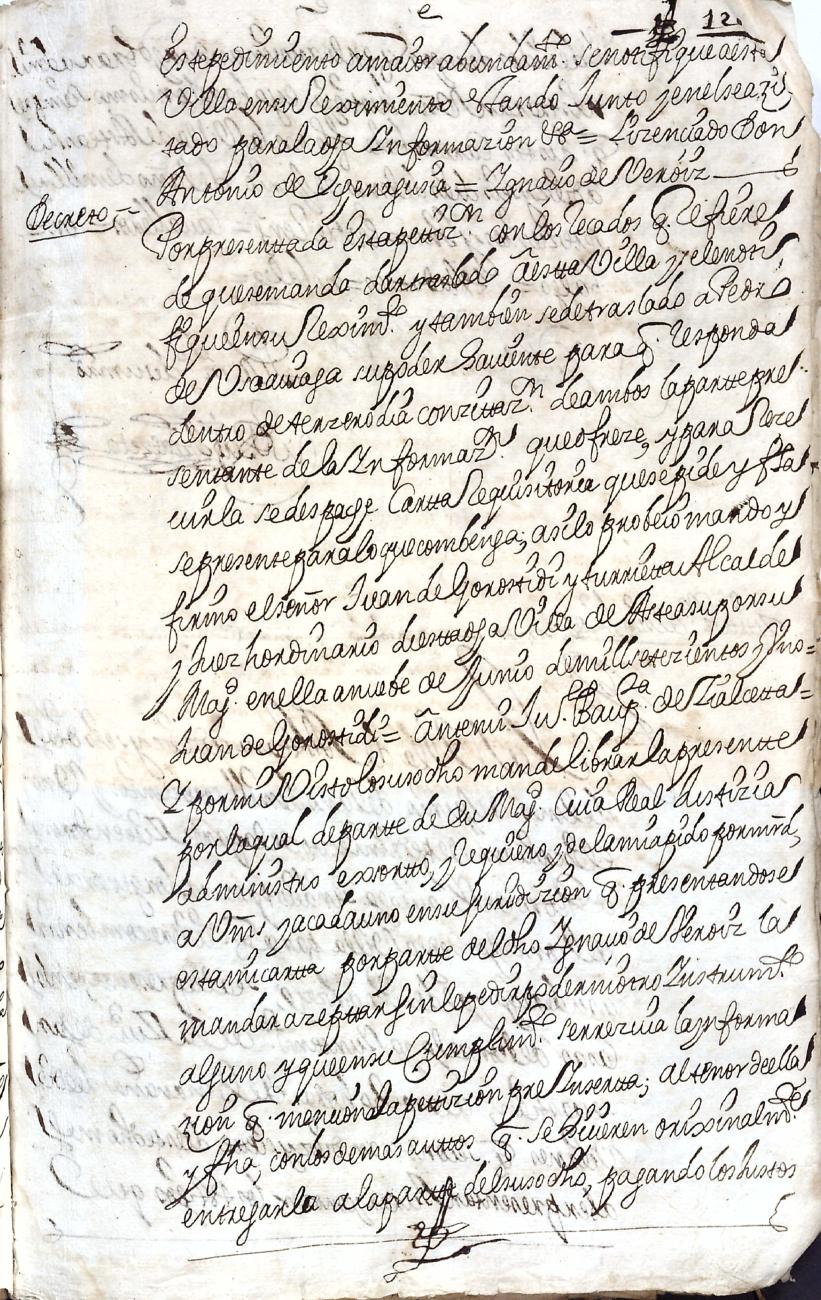 12.
este pedimiento a maior abundam.to se notifique a esta
Villa en su Reximiento estando Junto y en el seaziñ
tado para la dha Informazion &a = Lizenciado Don
Antonio de = Ignacio de Veroiz
Decreto,
Por presenttada esta petiz.n con los recados q. refiere
de que se manda dar traslado a esta Villa y se le noti
fique en su Reximi.to y tambien se de traslado a Pedro
de su poder haviente para q. responda
dentro de terzero dia con zittaz.n de ambos la partte pre
sentante de la Informaz.n que ofreze, y para Reze
uirla se despache Cartta Requisitoria que se pide y fha
se presente para lo que combenga; asi lo probeio mando y
firmo el señor Juan de Gorostidi y Yurrietta Alcalde
y Juez hordinario de estta dha Villa de Asteasu por su
Mag.d en ella a nuebe de Junio de mill settezientos y uno=
Juan de Gorostidi= Ante mi Ju.o Baup.ta de =
Y por mi Visto lo susodho mande librar la presentte
por la qual de partte de Su Mag.d Cuia Real Justizia
administro exsortto, y requiero, y de la mia pido por mrd,
a Vms. y a cada uno en su Juridizion q. presentandose
esta mi cartta por partte del dho Ignacio de Veroiz la
mandar azepttar sin le pedir poder ni otro Instrum.to
alguno y que en su Cumplim.to se rezcia la Informa
zion q. menciona la petizion pre Insertta; al tenor de ella
y fha, con los demas auttos q. se hizieren orixinalm.te
entregarla a la partte del susodho, pagando los Justos